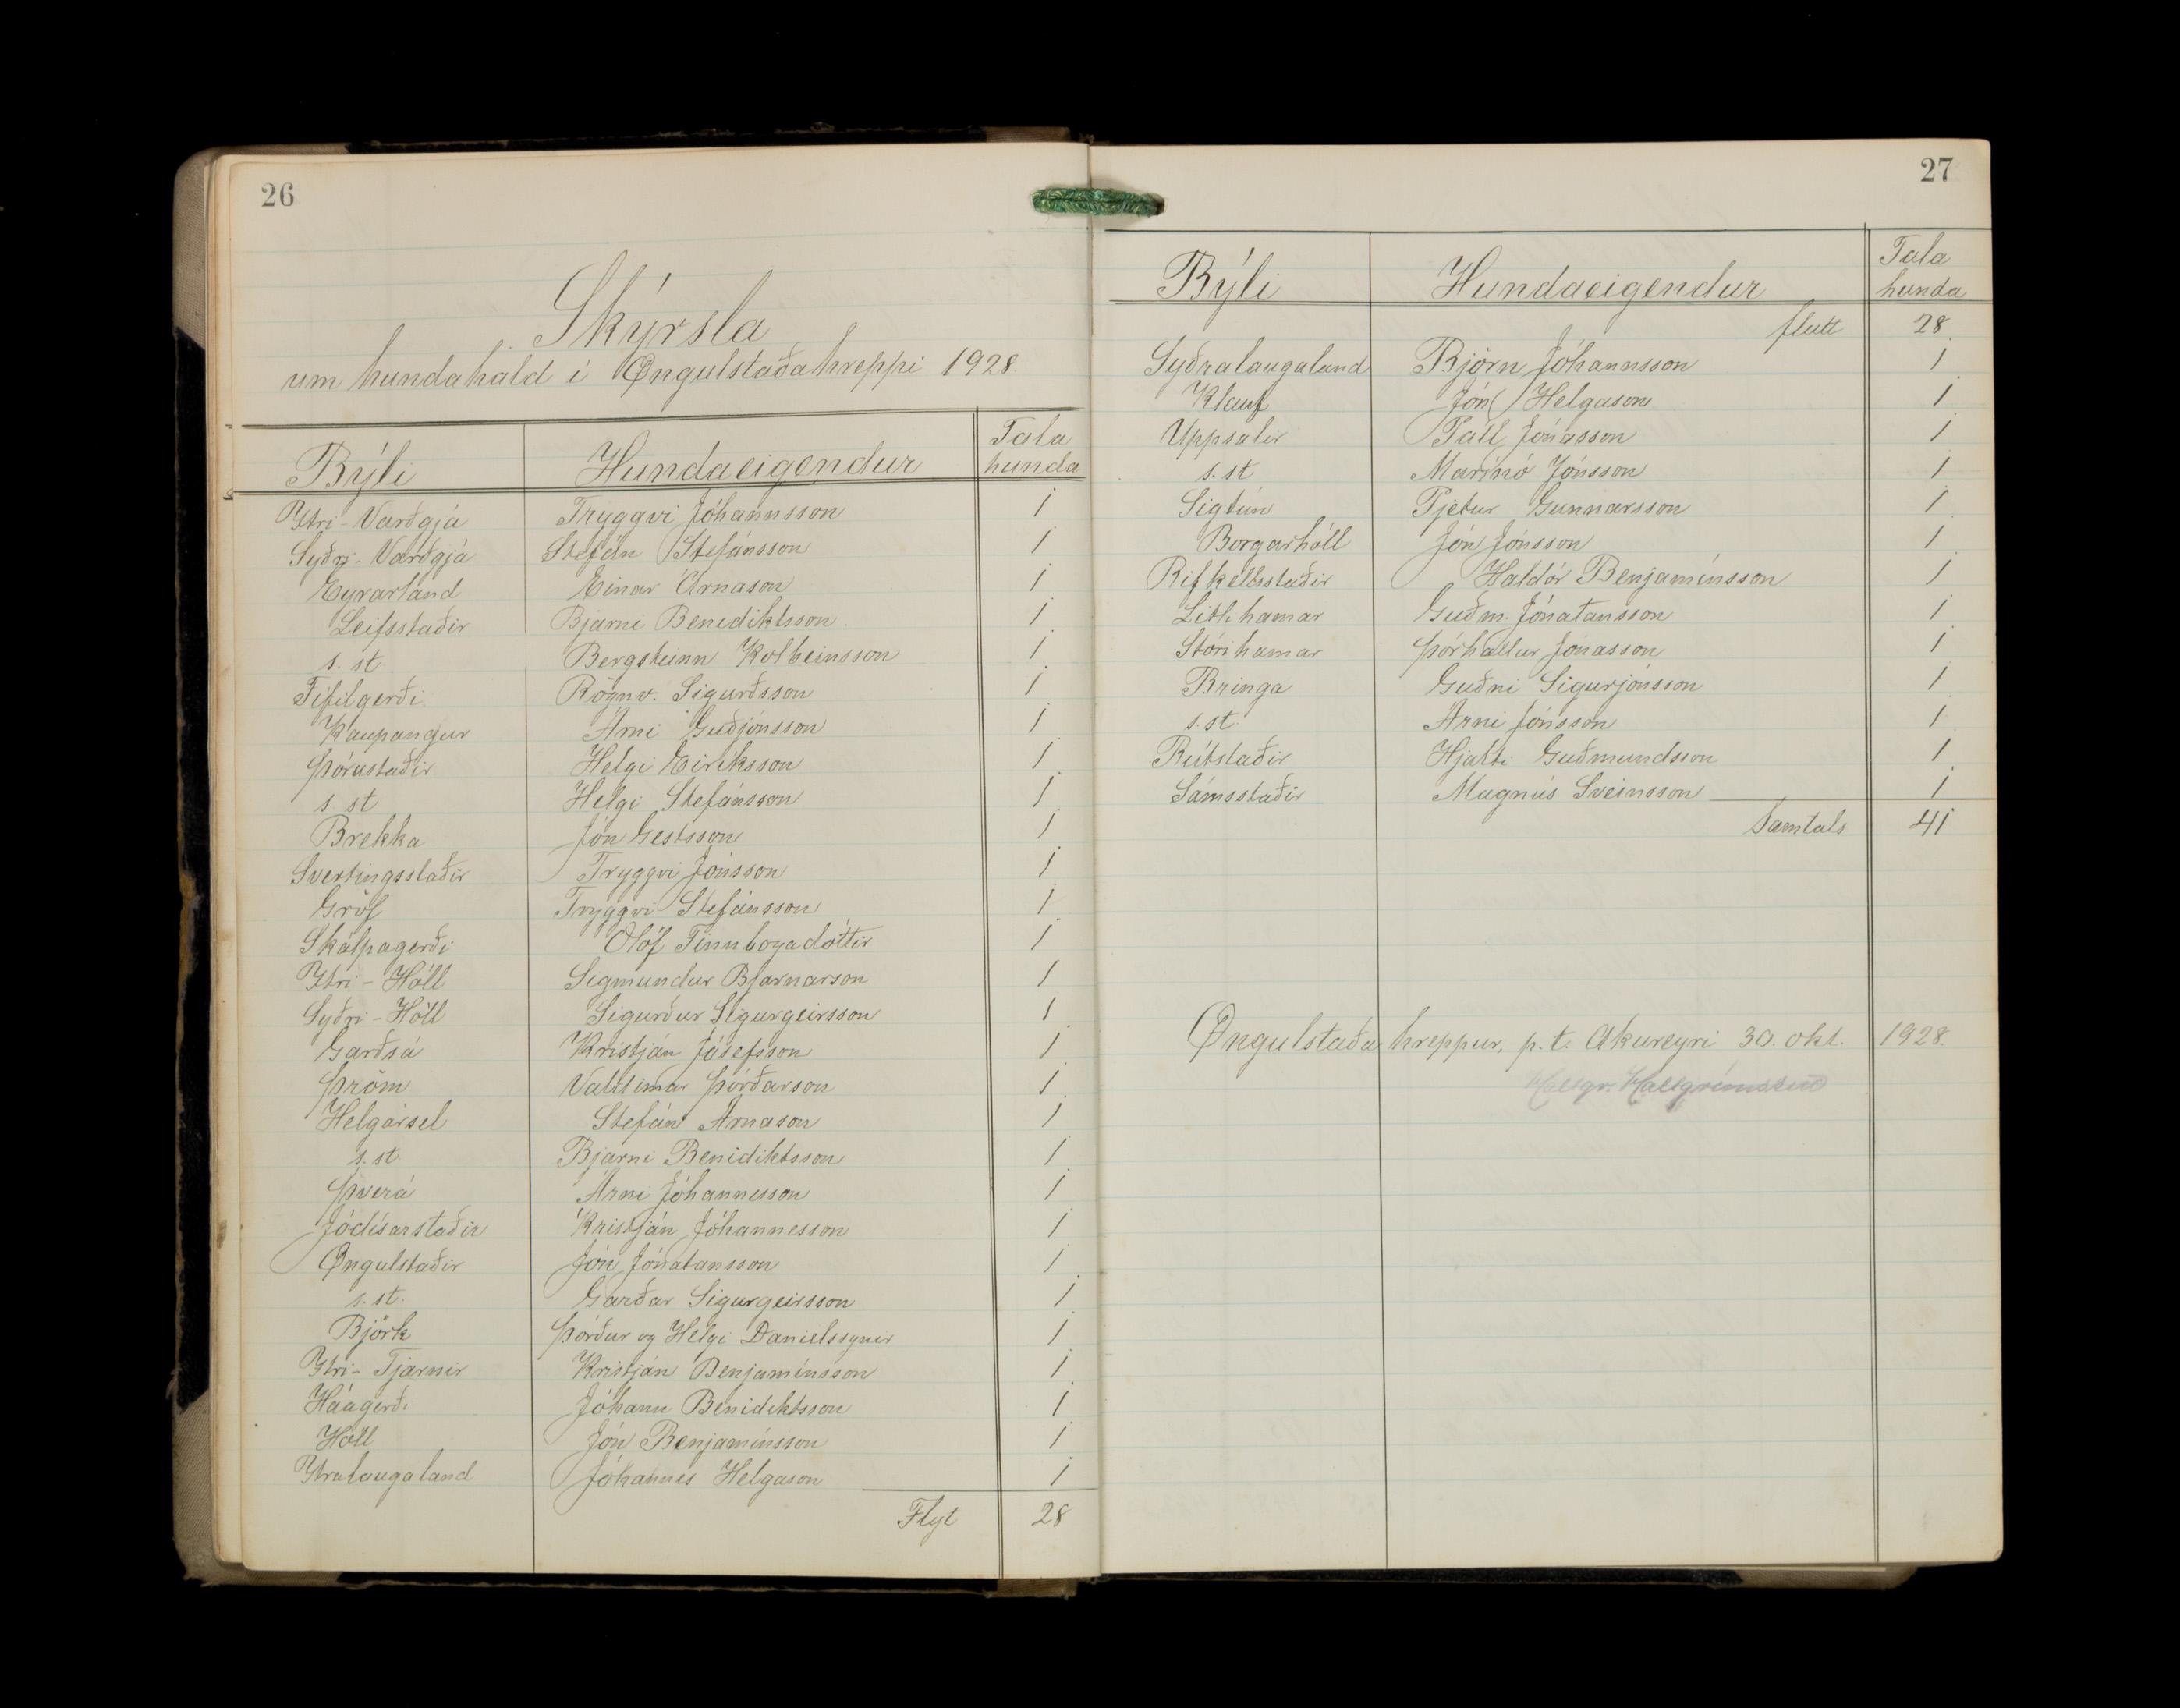 26
Skýrsla
um hundahald í Øngulstaðahreppi 1928
Býli Hundaeigendur Tala hunda
Ytri-Varðgjá Tryggvi Jóhannsson 1
Syðri-Varðgjá Stefán Stefánsson 1
Eyrarland Einar Árnason 1
Leifsstaðir Bjarni Benediktsson 1
s. st Bergsteinn Kolbeinsson 1
Fífilgerði Rögnv. Sigurðsson 1
Kaupangur Árni Guðjónsson 1
Þórustaðir Helgi Eiríksson 1
s. st Helgi Stefánsson 1
Brekka Jón Gestsson 1
Svertingsstaðir Tryggvi Jónsson 1
Gröf Tryggvi Stefánsson 1
Skálpagerði Ólöf Finnbogadóttir 1
Ytri-Hóll Sigmundur Bjarnarson 1
Syðri-Hóll Sigurður Sigurgeirsson 1
Garðsá Kristján Jósefsson 1
Þröm Valdimar Þórðarson 1
Helgársel Stefán Árnason 1
s. st. Bjarni Benidiktsson 1
Þverá Árni Jóhannesson 1
Jódísarstaðir Kristján Jóhannesson 1
Øngulstaðir Jón Jónatansson 1
s. st. Garðar Sigurgeirsson 1
Björk Þórður og Helgi Daníelssynir 1
Ytri-Tjarnir Kristján Benjamínsson 1
Háagerði Jóhann Benidiktsson 1
Hóll Jón Benjamínsson 1
Ytralaugaland Jóhannes Helgason 1
Flyt 28
27
Býli Hundaeigendur Tala hunda
flutt 28
Syðralaugaland Björn Jóhannsson 1
Klauf Jón Helgason 1
Uppsalir Páll Jónasson 1
s. st Marinó Jónsson 1
Sigtún Pjetur Gunnarsson 1
Borgarhóll Jón Jónsson 1
Rifkelsstaðir Haldór Benjamínsson 1
Litlihamar Guðm. Jónatansson 1
Stórihamar Þórhallur Jónasson 1
Bringa Guðni Sigurjónsson 1
s. st. Árni Jónsson 1
Rútsstaðir Hjalti Guðmundsson 1
Sámsstaðir Magnús Sveinsson 1
Samtals 41
Øngulstaðahreppur, p.t. Akureyri 30. okt. 1928.
Hallgr. Hallgrímsson